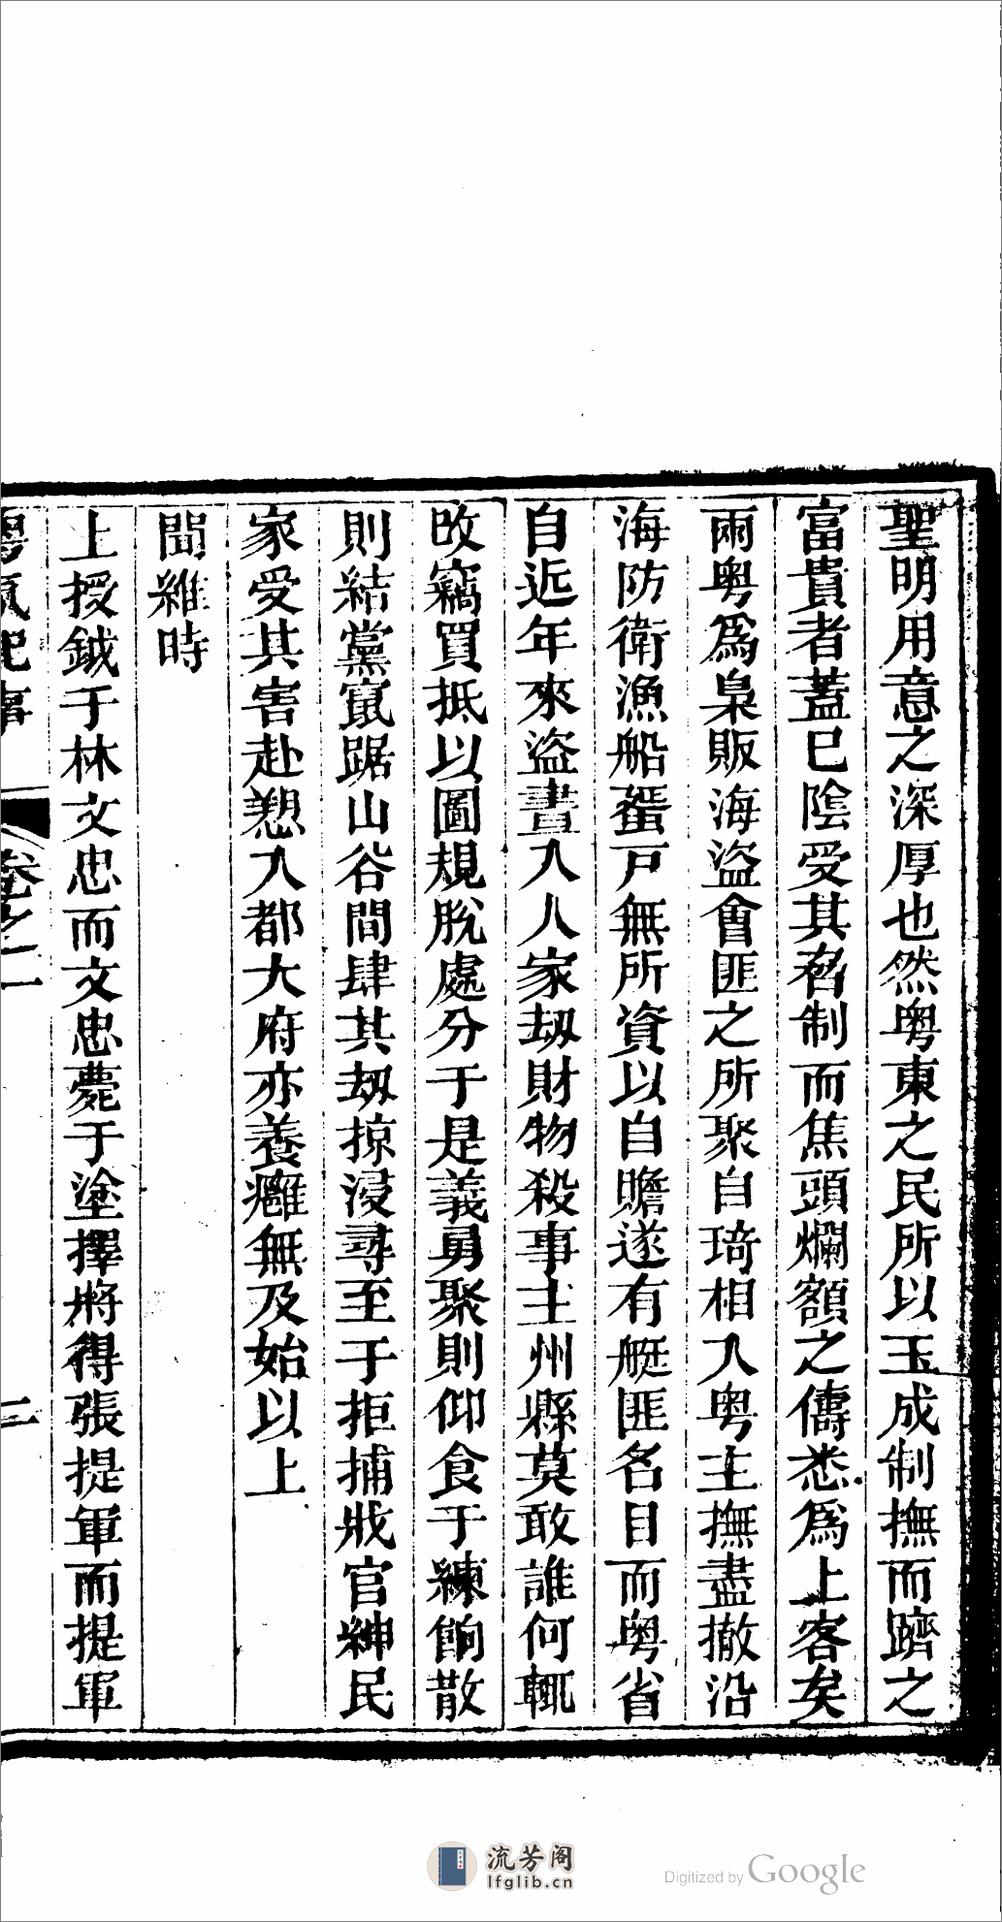 聖明用意之深厚也然粤東之民所以玉成制撫而躋之
富貴者蓋已陰受其脅制而焦頭爛額之儔悉爲上客矣
兩粤爲梟販海盜會匪之所聚自琦相入粤主撫盡撤沿
海防衛漁船蜑戸無所資以自贍遂有艇匪名目而粤省
自近年來盜晝入人家劫財物殺事主州縣莫敢誰何輒
改竊買抵以圖規脫處分于是義勇聚則仰食于練餉散
則結黨竄踞山谷間肆其劫掠浸尋至于拒捕戕官紳民
家受其害赴愬入都大府亦養癰無及始以上
聞維時
上授鉞于林文忠而文忠薨于塗擇將得張提軍而提軍
粤氛紀事 卷之一 二
流芳阁
lfglib.cn
Digitized by Google